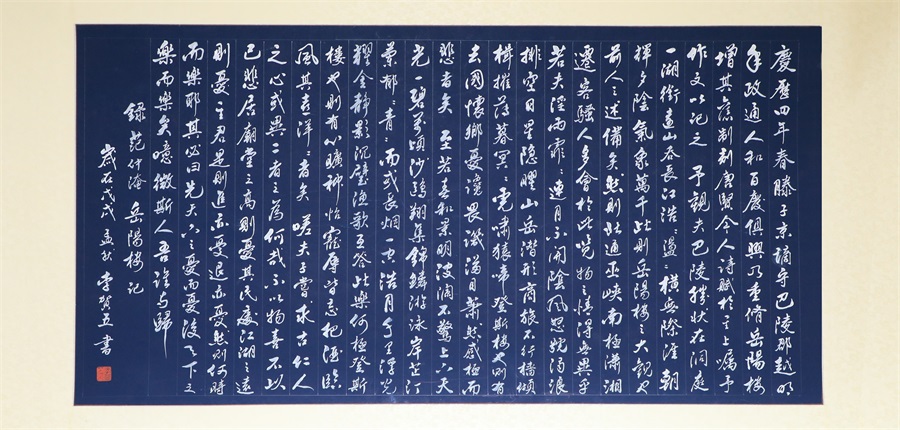 慶曆四年春滕子京謫守巴陵郡越明
年政通人和百廢俱興乃重脩岳陽樓
增其舊制刻唐賢今人詩賦於其上囑予
作文以記之予觀夫巴陵勝狀在洞庭
一湖銜遠山吞長江浩浩湯湯橫無際涯朝
暉夕陰氣象萬千此則岳陽樓之大觀也
前人之述備矣然則北通巫峽南極瀟湘
遷客騷人多會於此覽物之情得無異乎
若夫淫雨霏霏連月不開陰風怒號濁浪
排空日星隱曜山岳潛形商旅不行檣傾
楫摧薄暮冥冥虎嘯猿啼登斯樓也則有
去國懷鄉憂讒畏譏滿目蕭然感極而
悲者矣至若春和景明波瀾不驚上下天
光一碧萬頃沙鷗翔集錦鱗游泳岸芷汀
蘭郁郁青青而或長烟一空皓月千里浮光
耀金靜影沉璧漁歌互答此樂何極登斯
樓也則有心曠神怡寵辱皆忘把酒臨
風其喜洋洋者矣嗟夫予嘗求古仁人
之心或異二者之為何哉不以物喜不以
己悲居廟堂之高則憂其民處江湖之遠
則憂其君是則進亦憂退亦憂然則何時
而樂耶其必曰先天下之憂而憂後天下之
樂而樂矣噫微斯人吾誰與歸
錄范仲淹岳陽樓記
歲在戊戌孟秋李賀五書